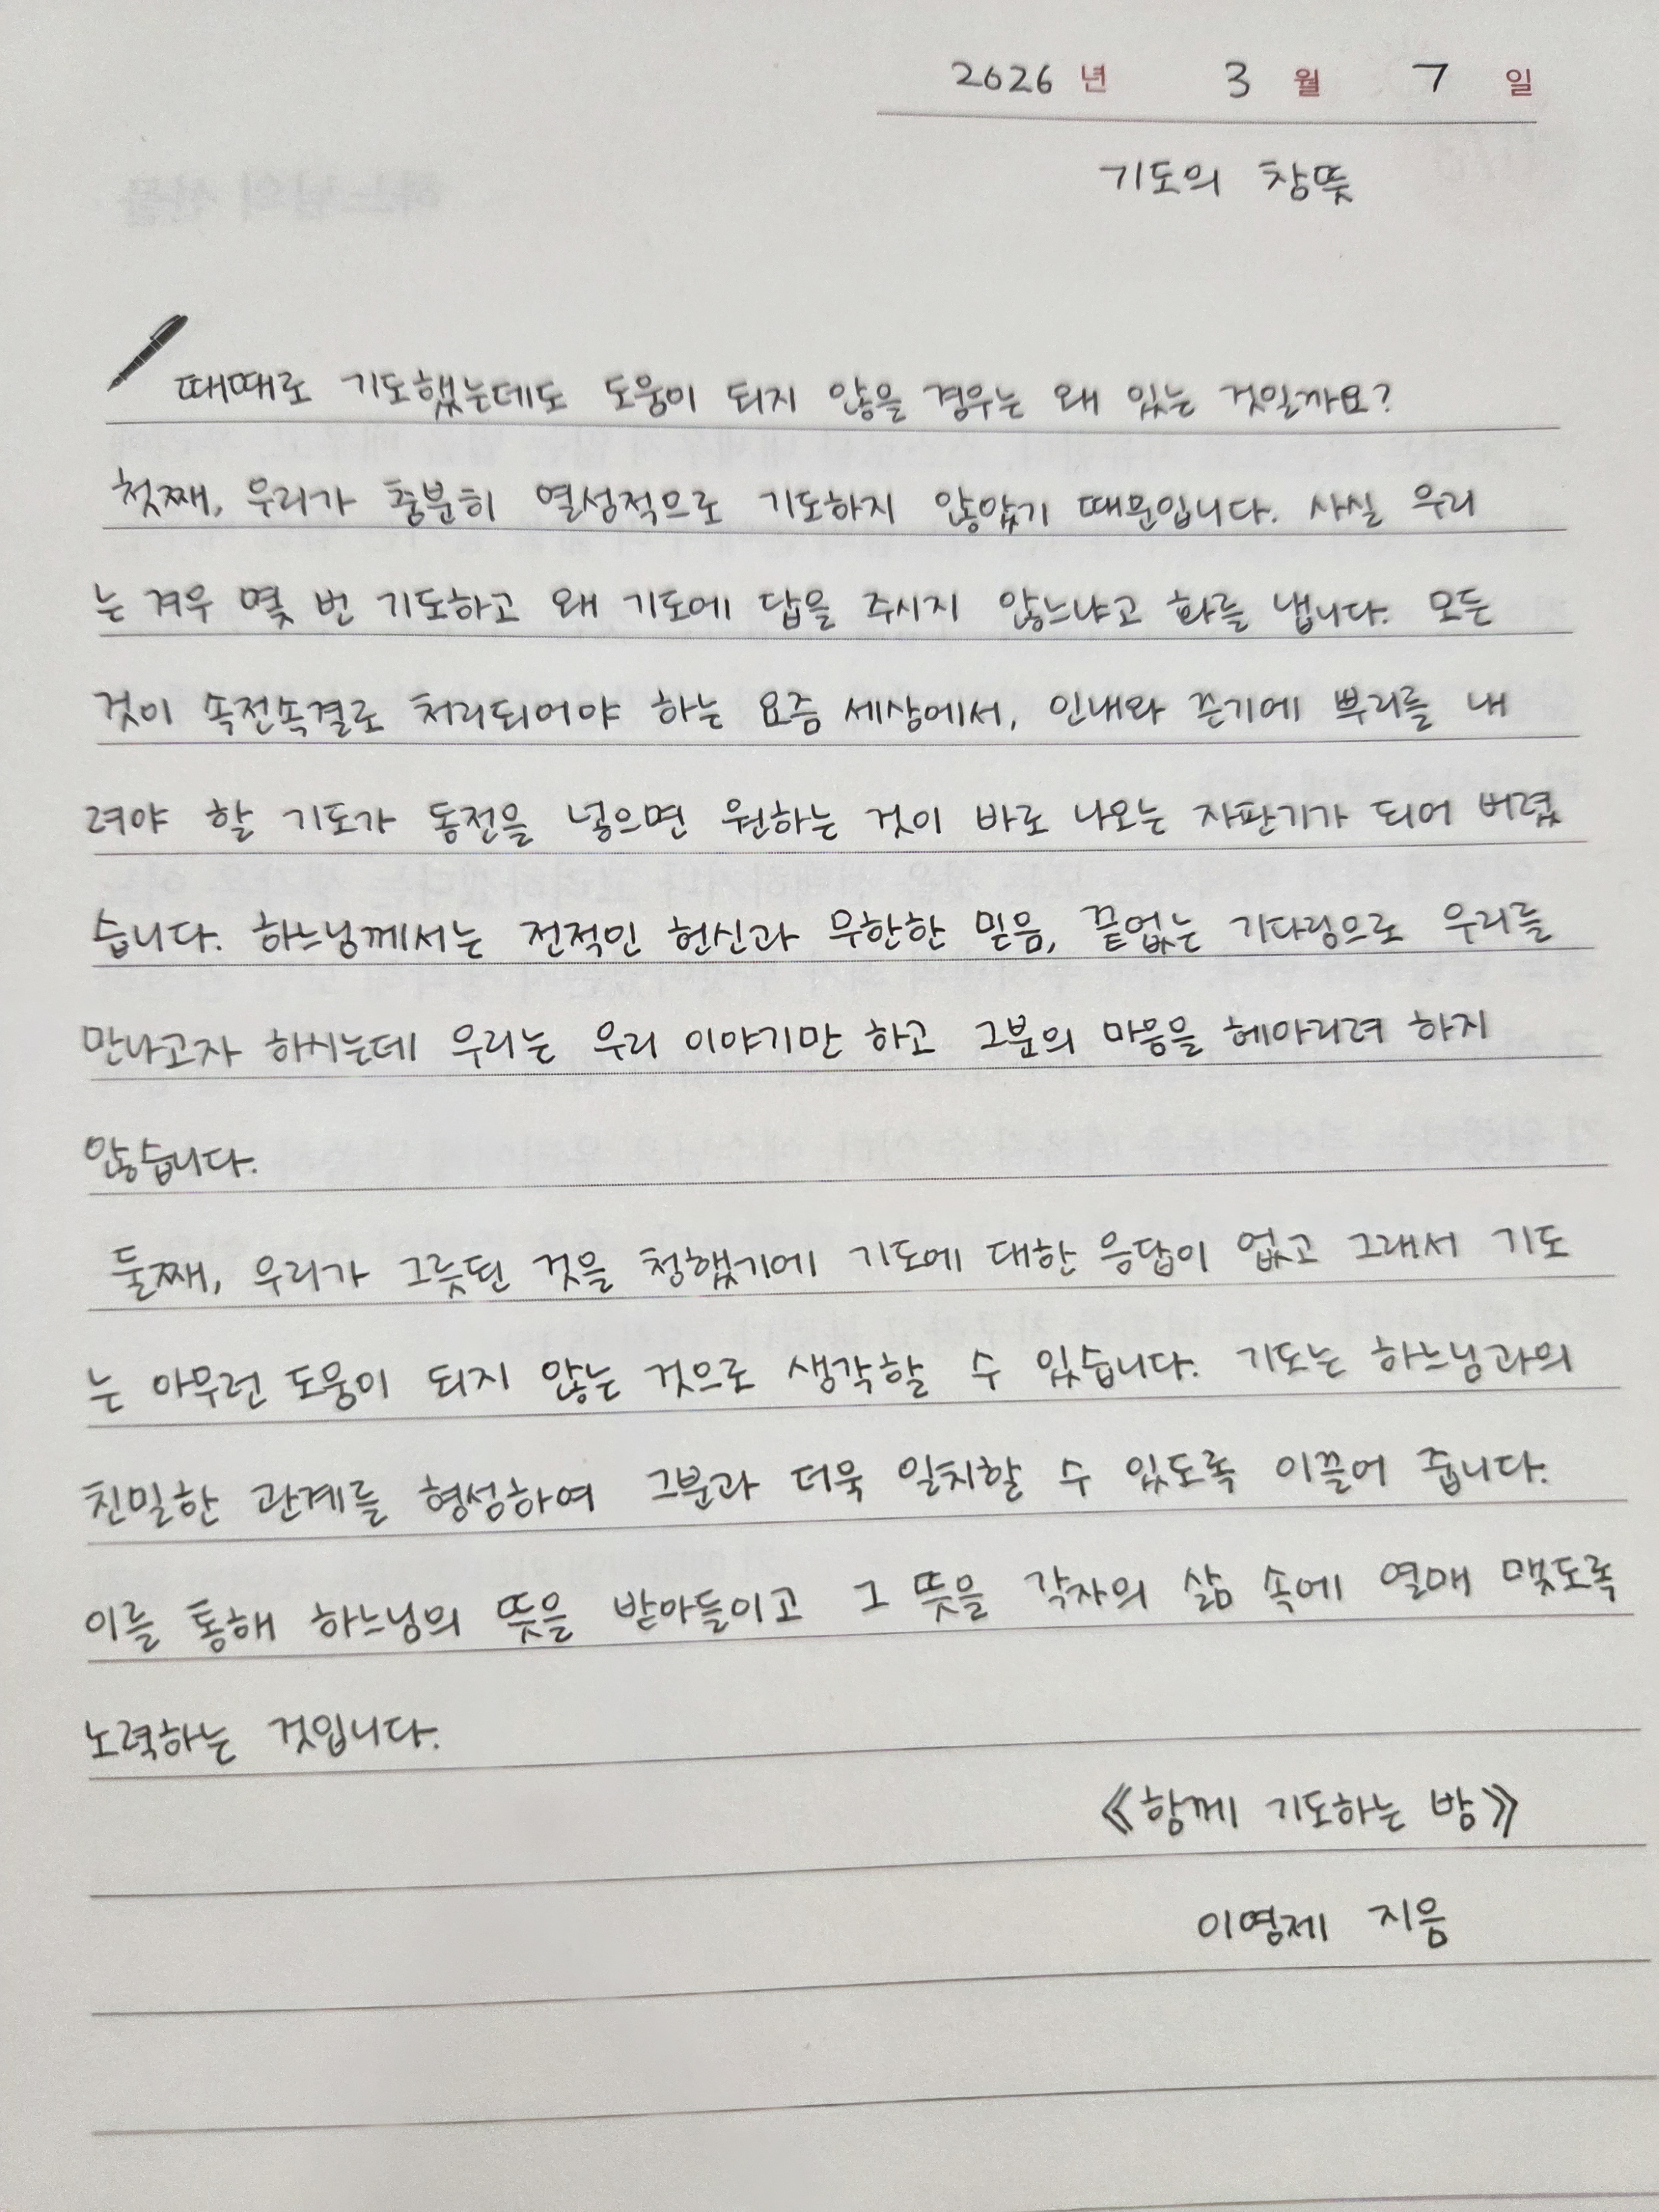 2026 년 3 월 7 일
기도의 참뜻
때때로 기도했는데도 도움이 되지 않을 경우는 왜 있는 것일까요?
첫째, 우리가 충분히 열성적으로 기도하지 않았기 때문입니다. 사실 우리
는 겨우 몇 번 기도하고 왜 기도에 답을 주시지 않느냐고 화를 냅니다. 모든
것이 속전속결로 처리되어야 하는 요즘 세상에서, 인내와 끈기에 뿌리를 내
려야 할 기도가 동전을 넣으면 원하는 것이 바로 나오는 자판기가 되어 버렸
습니다. 하느님께서는 전적인 헌신과 무한한 믿음, 끝없는 기다림으로 우리를
만나고자 하시는데 우리는 우리 이야기만 하고 그분의 마음을 헤아리려 하지
않습니다.
둘째, 우리가 그릇된 것을 청했기에 기도에 대한 응답이 없고 그래서 기도
는 아무런 도움이 되지 않는 것으로 생각할 수 있습니다. 기도는 하느님과의
친밀한 관계를 형성하여 그분과 더욱 일치할 수 있도록 이끌어 줍니다.
이를 통해 하느님의 뜻을 받아들이고 그 뜻을 각자의 삶 속에 열매 맺도록
노력하는 것입니다.
《함께 기도하는 밤》
이영제 지음